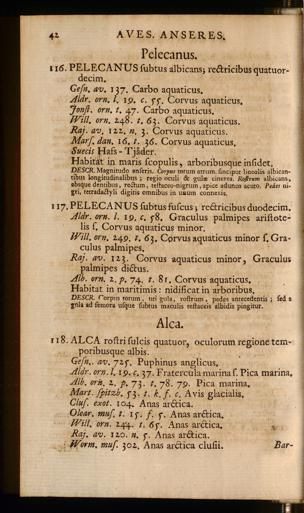 42 AVES. ANSERES.
Pelecanus.
116. PELECANUS subtus albicans; rectricibus quatuor-
decim.
Gesn. av. 137. Carbo aquaticus.
Aldr. orn. l. 19. c. 55. Corvus aquaticus.
Jonst. orn. t. 47. Carbo aquaticus.
Will. orn. 248. t. 63. Corvus aquaticus.
Raj. av. 122. n. 3. Corvus aquaticus.
Mars. dan. 16. t. 36. Corvus aquaticus.
Suecis Hafs-Tjäder.
Habitat in maris scopulis, arboribusque insidet.
DESCR. Magnitudo anseris. Corpus totum atrum. sinciput lineolis albican-
tibus longitudinalibus; regio oculi & gulæ cinerea. Rostrum albicans,
absque dentibus, rectum, testaceo-nigrum, apice adunco acuto. Pedes ni-
gri, tetradactyli digitis omnibus in unum connexis.
117. PELECANUS subtus fuscus; rectricibus duodecim.
Aldr. orn. l. 19. c. 58. Graculus palmipes aristote-
lis s. Corvus aquaticus minor.
Will. orn. 249. t. 63. Corvus aquaticus minor s. Gra-
culus palmipes.
Raj. av. 123. Corvus aquaticus minor, Graculus
palmipes dictus.
Alb. orn. 2. p. 74. t. 81. Corvus aquaticus.
Habitat in maritimis: nidificat in arboribus.
DESCR. Corpus totum, uti gula, rostrum, pedes antecedentis; sed a
gula ad femora usque subtus maculis testaceis albidis pingitur.
Alca.
118. ALCA rostri sulcis quatuor, oculorum regione tem-
poribusque albis.
Gesn. av. 725. Puphinus anglicus.
Aldr. orn. l. 19. c. 37. Fratercula marina s. Pica marina.
Alb. orn. 2. p. 73. t. 78. 79. Pica marina.
Mart. spitzb. 53. t. k. f. c. Avis glacialis.
Clus. exot. 104. Anas arctica.
Olear. mus. t. 15. f. 5. Anas arctica.
Will. orn. 244. t. 65. Anas arctica.
Raj. av. 120. n. 5. Anas arctica.
Worm. mus. 302. Anas arctica clusii. Bar-